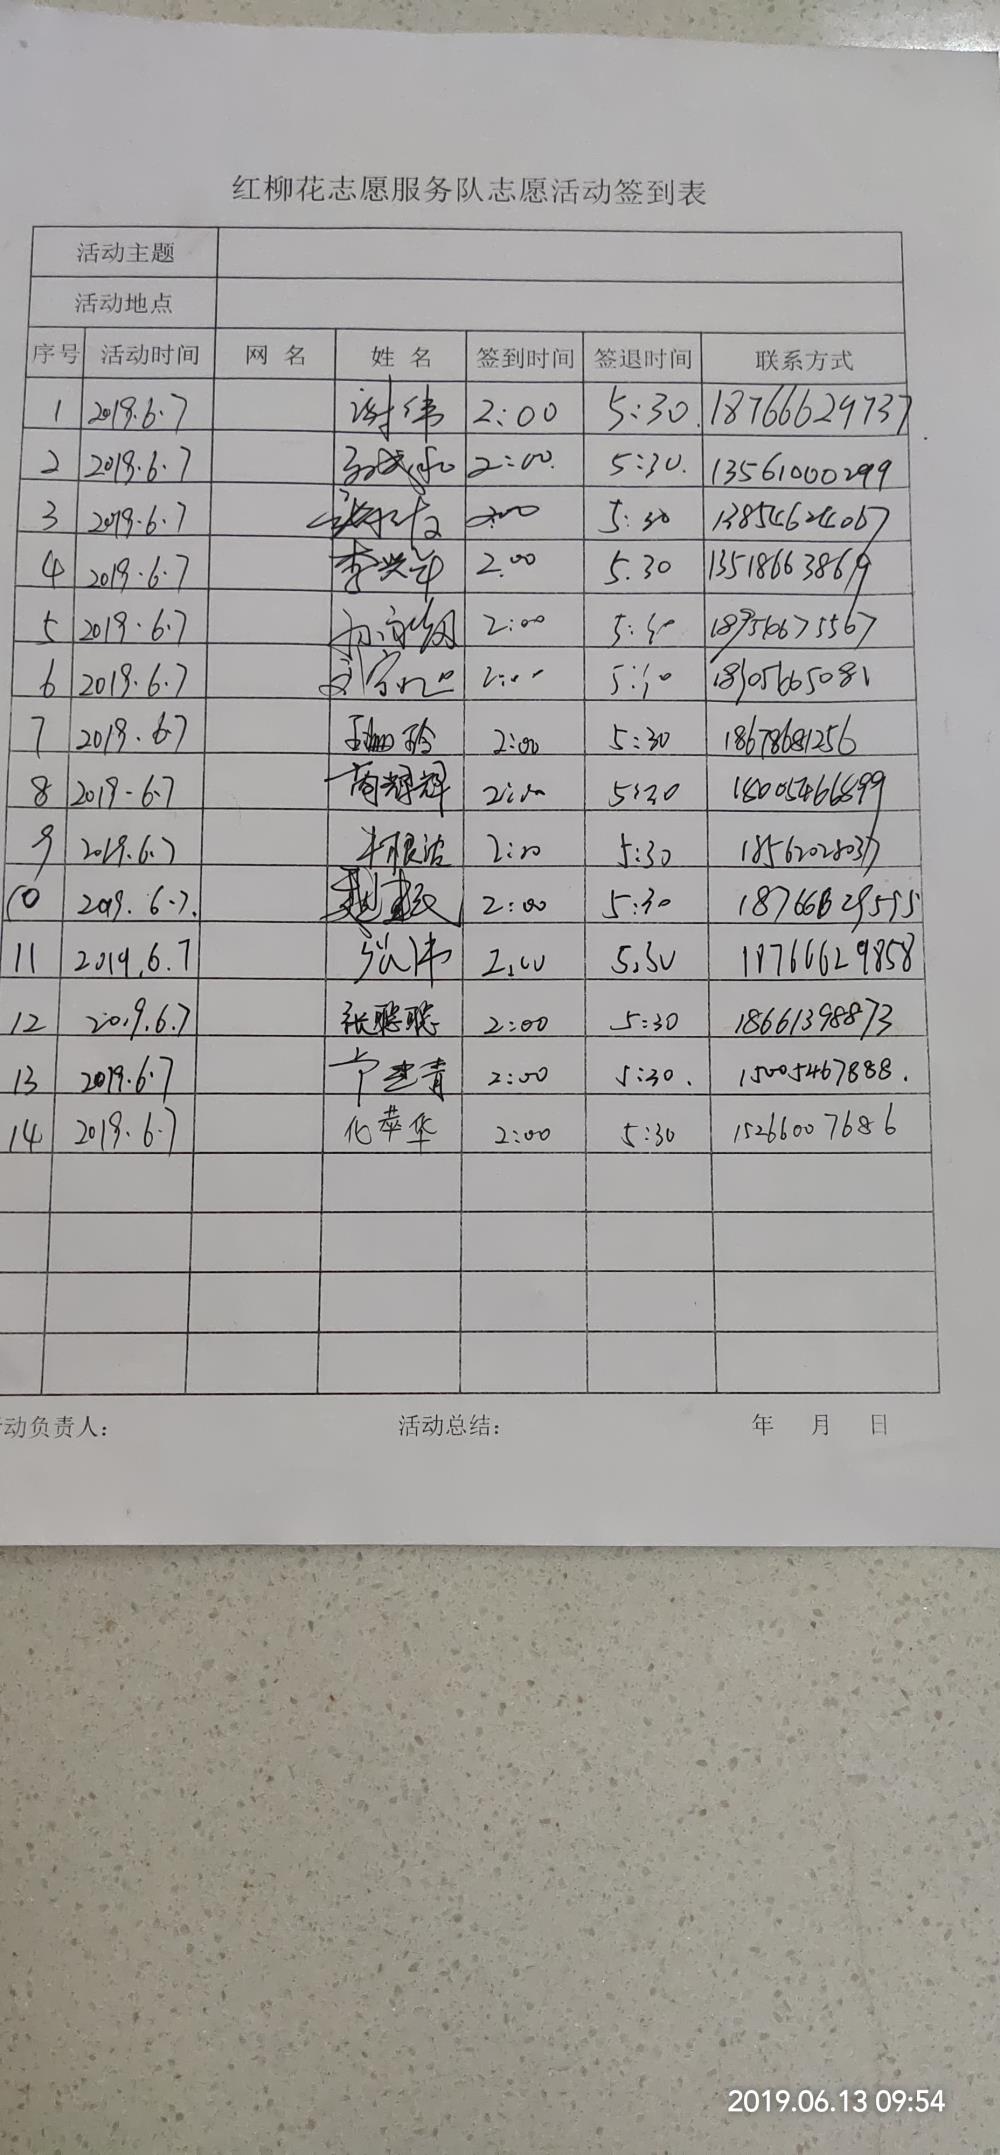 红柳花志愿服务队志愿活动签到表
活动主题
活动地点
序号 活动时间 网 名 姓 名 签到时间 签退时间 联系方式
1 2019.6.7 谢伟 2:00 5:30 18766629737
2 2019.6.7 2:00 5:30 13561000299
3 2019.6.7 2:00 5:30 13854624067
4 2019.6.7 李兴华 2.00 5.30
5 2019.6.7 2:00 5:30
6 2019.6.7 2:00 5:30 18905665081
7 2019.6.7 2:00 5:30 18678681256
8 2019.6.7 2:00 5:30
9 2019.6.7 2:00 5:30 18562028037
10 2019.6.7. 2:00 5:30 18766629595
11 2019.6.7 2:00 5:30 18766629858
12 2019.6.7 张聪聪 2:00 5:30 18661398873
13 2019.6.7 2:00 5:30. 15005467888.
14 2019.6.7 化苹华 2:00 5:30 15266007686
动负责人: 活动总结: 年 月 日
2019.06.13 09:54